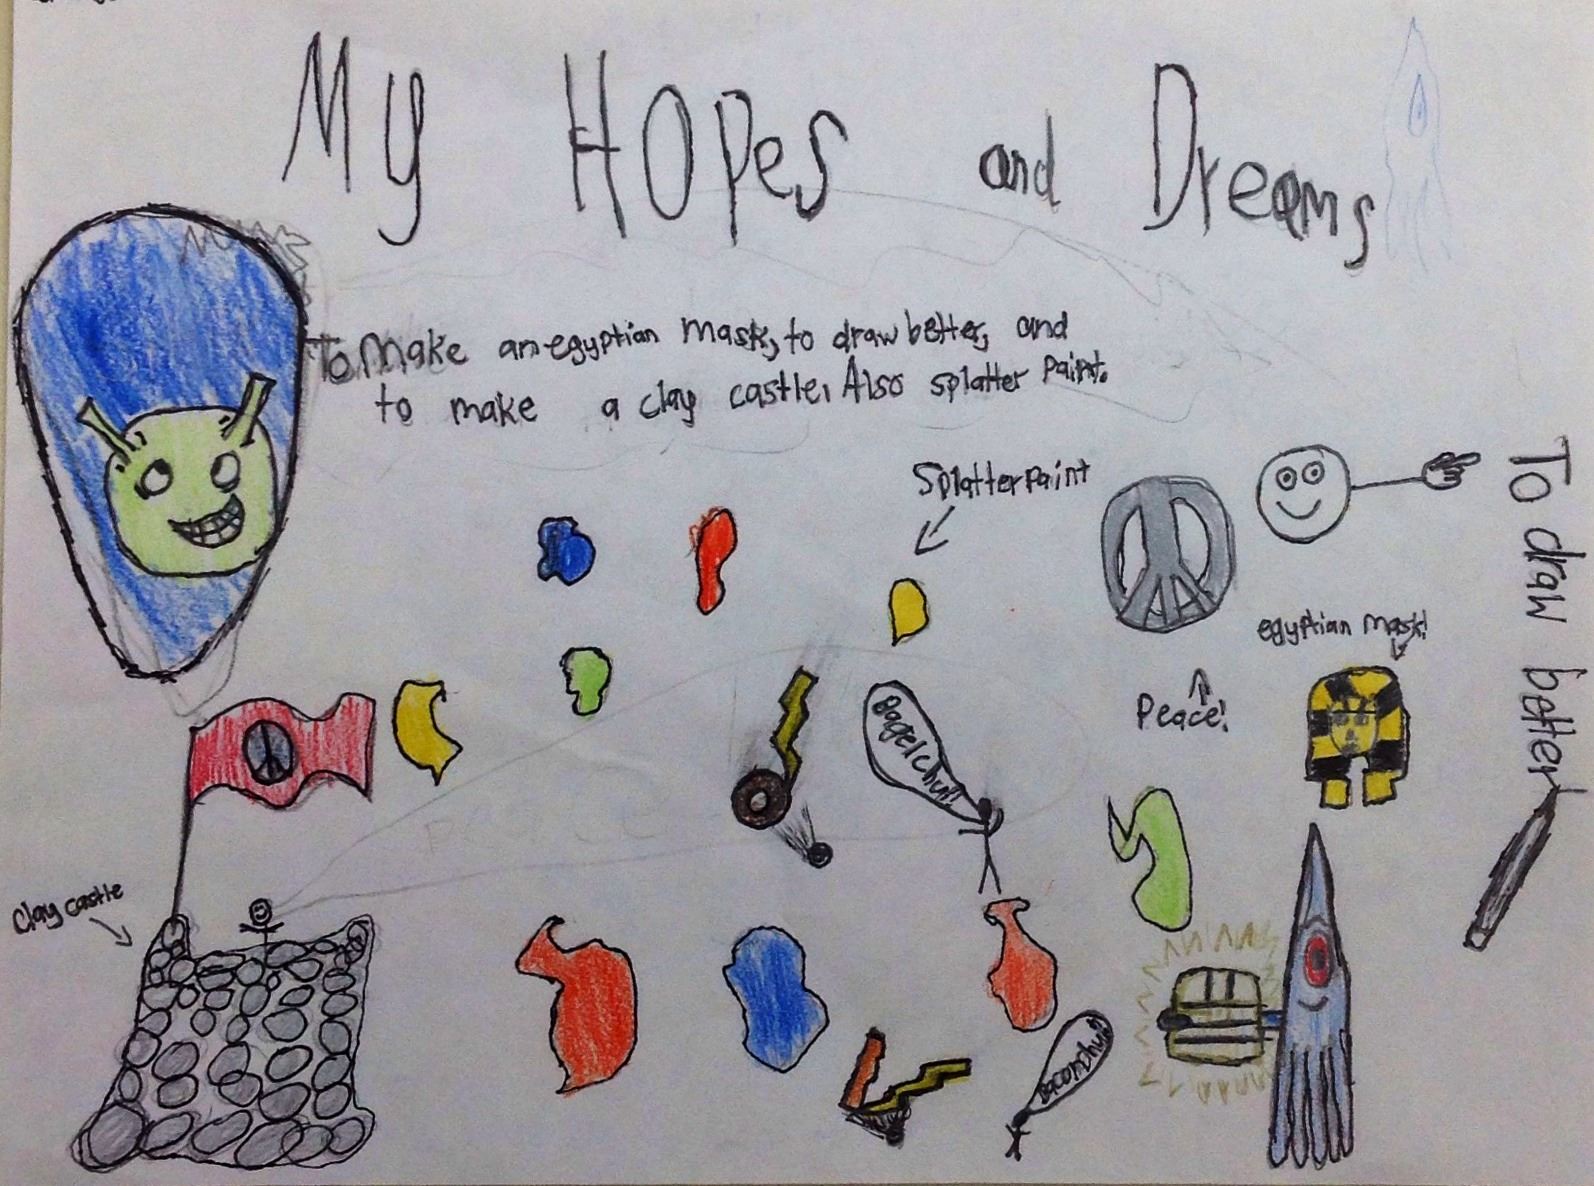 My Hopes and Dreams
To Make an egyptian mask, to draw better, and
to make a clay castle. Also splatter paint.
Splatter paint
To draw better
egyptian mask!
Peace!
Bagelchu!!
Clay castle
Baconchu!!